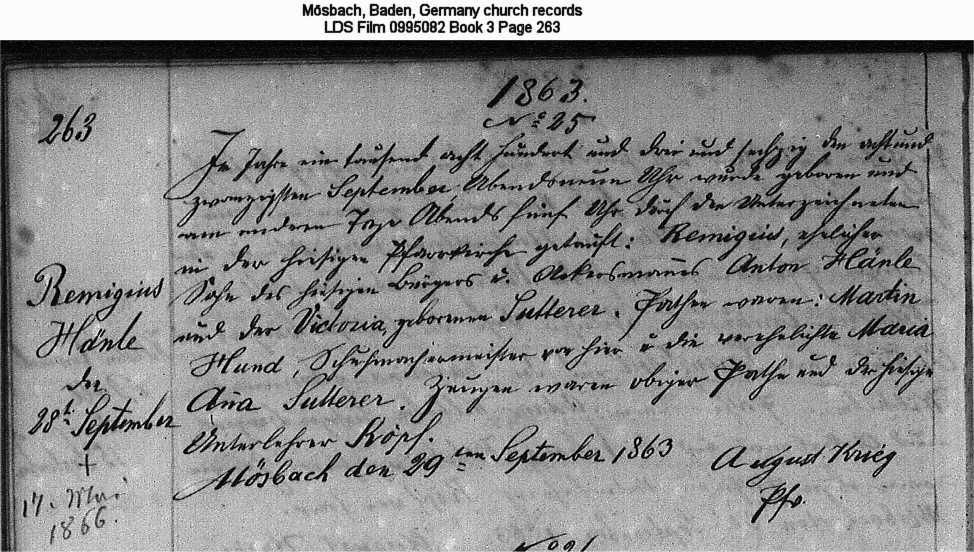 Mösbach, Baden, Germany church records
LDS Film 0995082 Book 3 Page 263
1863.
No 25
263
Im Jahre ein tausend acht hundert und drei und sechzig den acht und
zwanzigsten September Abends neun Uhr wurde geboren und
am andern Tage Abends fünf Uhr durch den Unterzeichneten
in der hiesigen Pfarrkirche getauft: Remigius, ehelicher
Sohn des hiesigen Bürgers u. Ackersmannes Anton Hänle
und der Victoria, geborenen Sutterer. Pathen waren: Martin
Hund, Schuhmachermeister von hier u die verehelichte Maria
Ana Sutterer. Zeugen waren obiger Pathe und der hiesige
Unterlehrer Köpf.
Mösbach den 29ten September 1863
August Krieg
Pfr.
Remigius
Hänle
den
28t. September
†
17. Mai
1866.